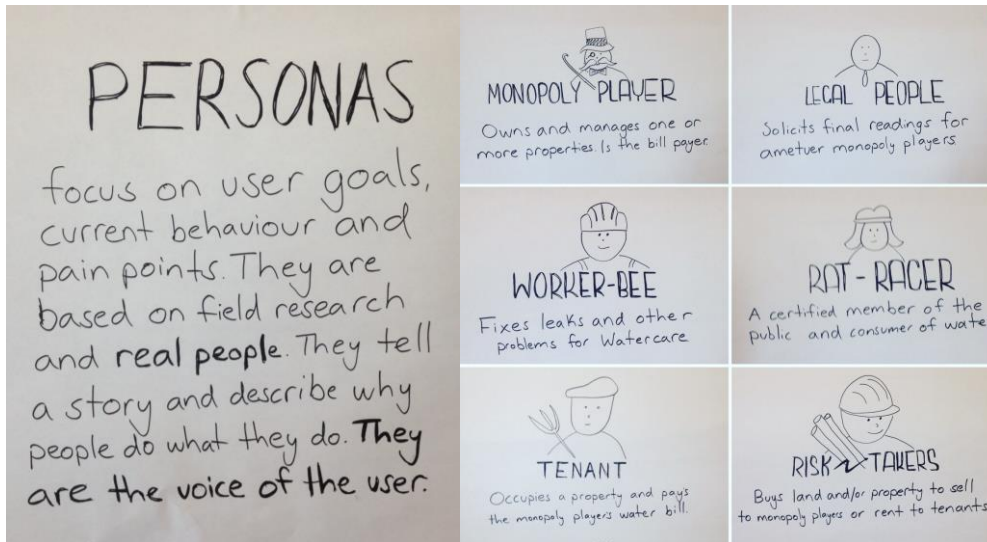 PERSONAS
focus on user goals,
current behaviour and
pain points. They are
based on field research
and real people. They tell
a story and describe why
people do what they do. They
are the voice of the user.
MONOPOLY PLAYER
Owns and manages one or
more properties. Is the bill payer
LEGAL PEOPLE
Solicits final readings for
ametuer monopoly players
WORKER-BEE
Fixes leaks and other
problems for Watercare
RAT-RACER
A certified member of the
public and consumer of wate
TENANT
Occupies a property and pays
the monopoly players water bill.
RISK TAKERS
Buys land and/or property to sell
to monopoly players or rent to tenants